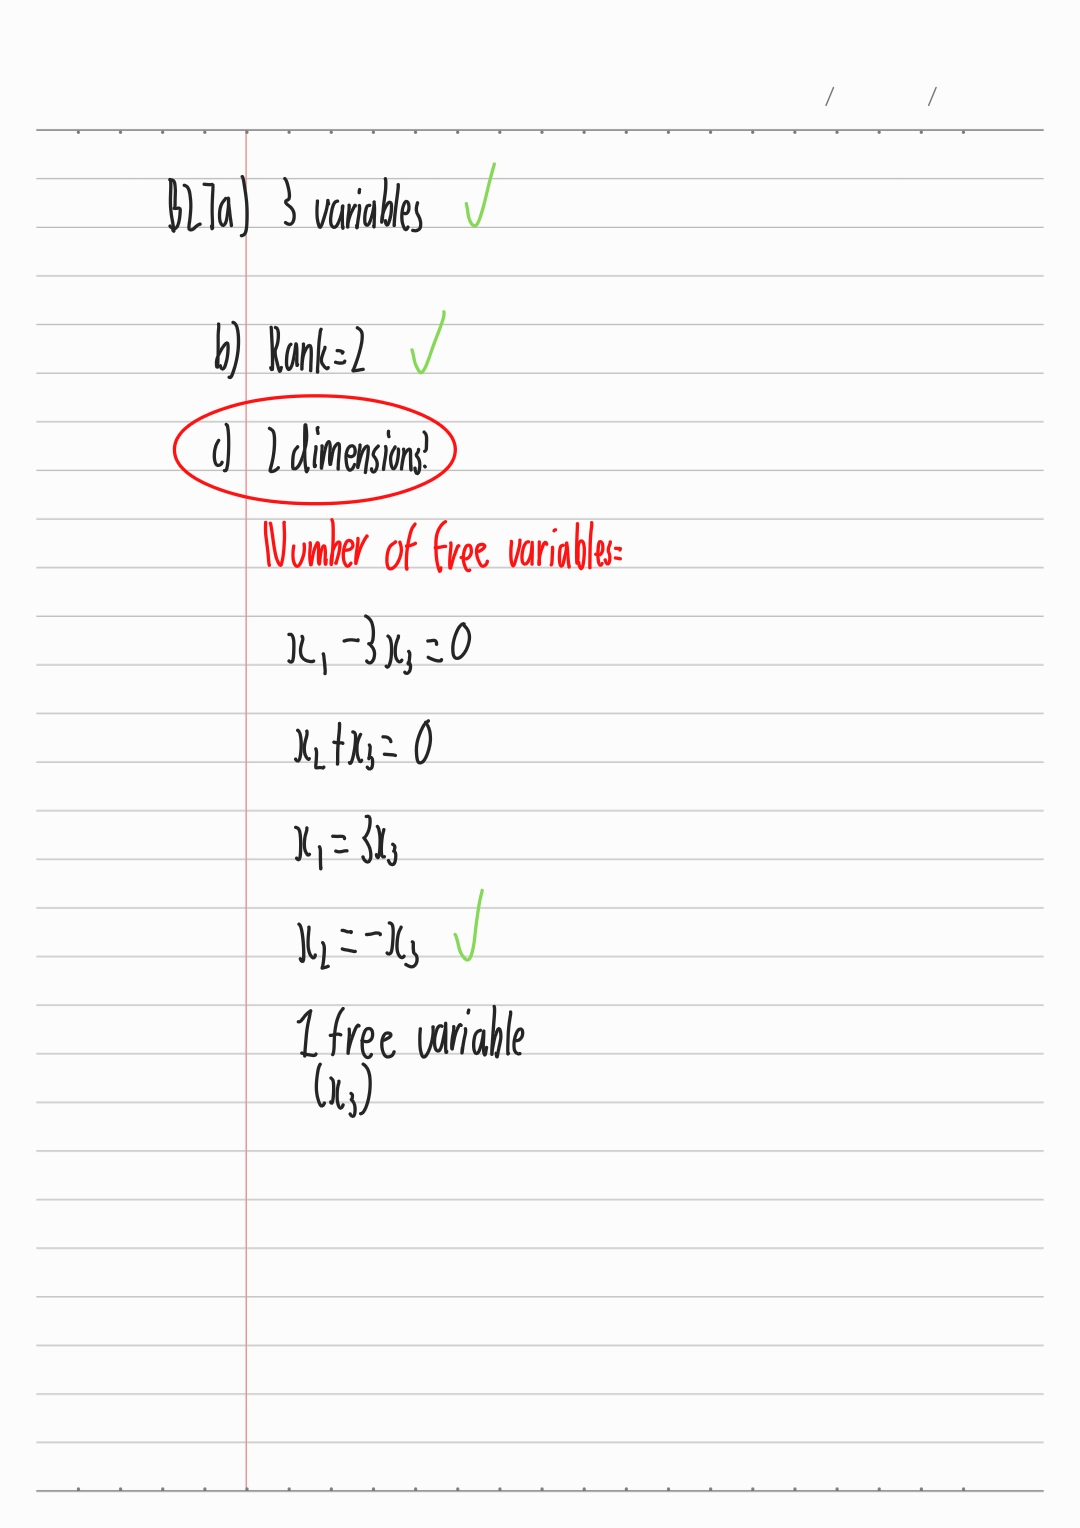 / /
B27a) 3 variables ✓
b) Rank=2 ✓
c) 2 dimensions?
Number of free variables=
x₁ -3x₃ = 0
x₂+x₃= 0
x₁ = 3x₃
x₂ = -x₃ ✓
1 free variable
(x₃)